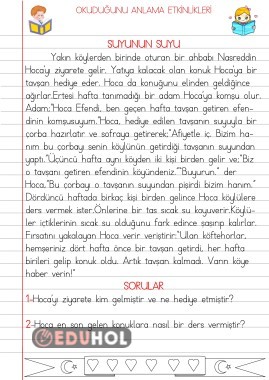 OKUDUĞUNU ANLAMA ETKİNLİKLERİ
SUYUNUN SUYU
Yakın köylerden birinde oturan bir ahbabı Nasreddin
Hoca'yı ziyarete gelir. Yatıya kalacak olan konuk Hoca'ya bir
tavşan hediye eder. Hoca da konuğunu elinden geldiğince
ağırlar.Ertesi hafta tanımadığı bir adam Hoca'ya komşu olur.
Adam:"Hoca Efendi, ben geçen hafta tavşan getiren efen-
dinin komşusuyum."Hoca, hediye edilen tavşanın suyuyla bir
çorba hazırlatır ve sofraya getirerek:"Afiyetle iç. Bizim ha-
nım bu çorbayı senin köylünün getirdiği tavşanın suyundan
yaptı."Üçüncü hafta aynı köyden iki kişi birden gelir ve:"Biz
o tavşanı getiren efendinin köyündeniz.""Buyurun." der
Hoca."Bu çorbayı o tavşanın suyundan pişirdi bizim hanım."
Dördüncü haftada birkaç kişi birden gelince Hoca köylülere
ders vermek ister.Önlerine bir tas sıcak su koyuverir.Köylü-
ler içtiklerinin sıcak su olduğunu fark edince şaşırıp kalırlar.
Fırsatını yakalayan Hoca verir veriştirir:"Ulan köftehorlar,
hemşeriniz dört hafta önce bir tavşan getirdi, her hafta
birileri gelip konuk oldu. Artık tavşan kalmadı. Varın köye
haber verin!"
SORULAR
1-Hoca'yı ziyarete kim gelmiştir ve ne hediye etmiştir?
2-Hoca en son gelen konuklara nasıl bir ders vermiştir?
EDUHOL